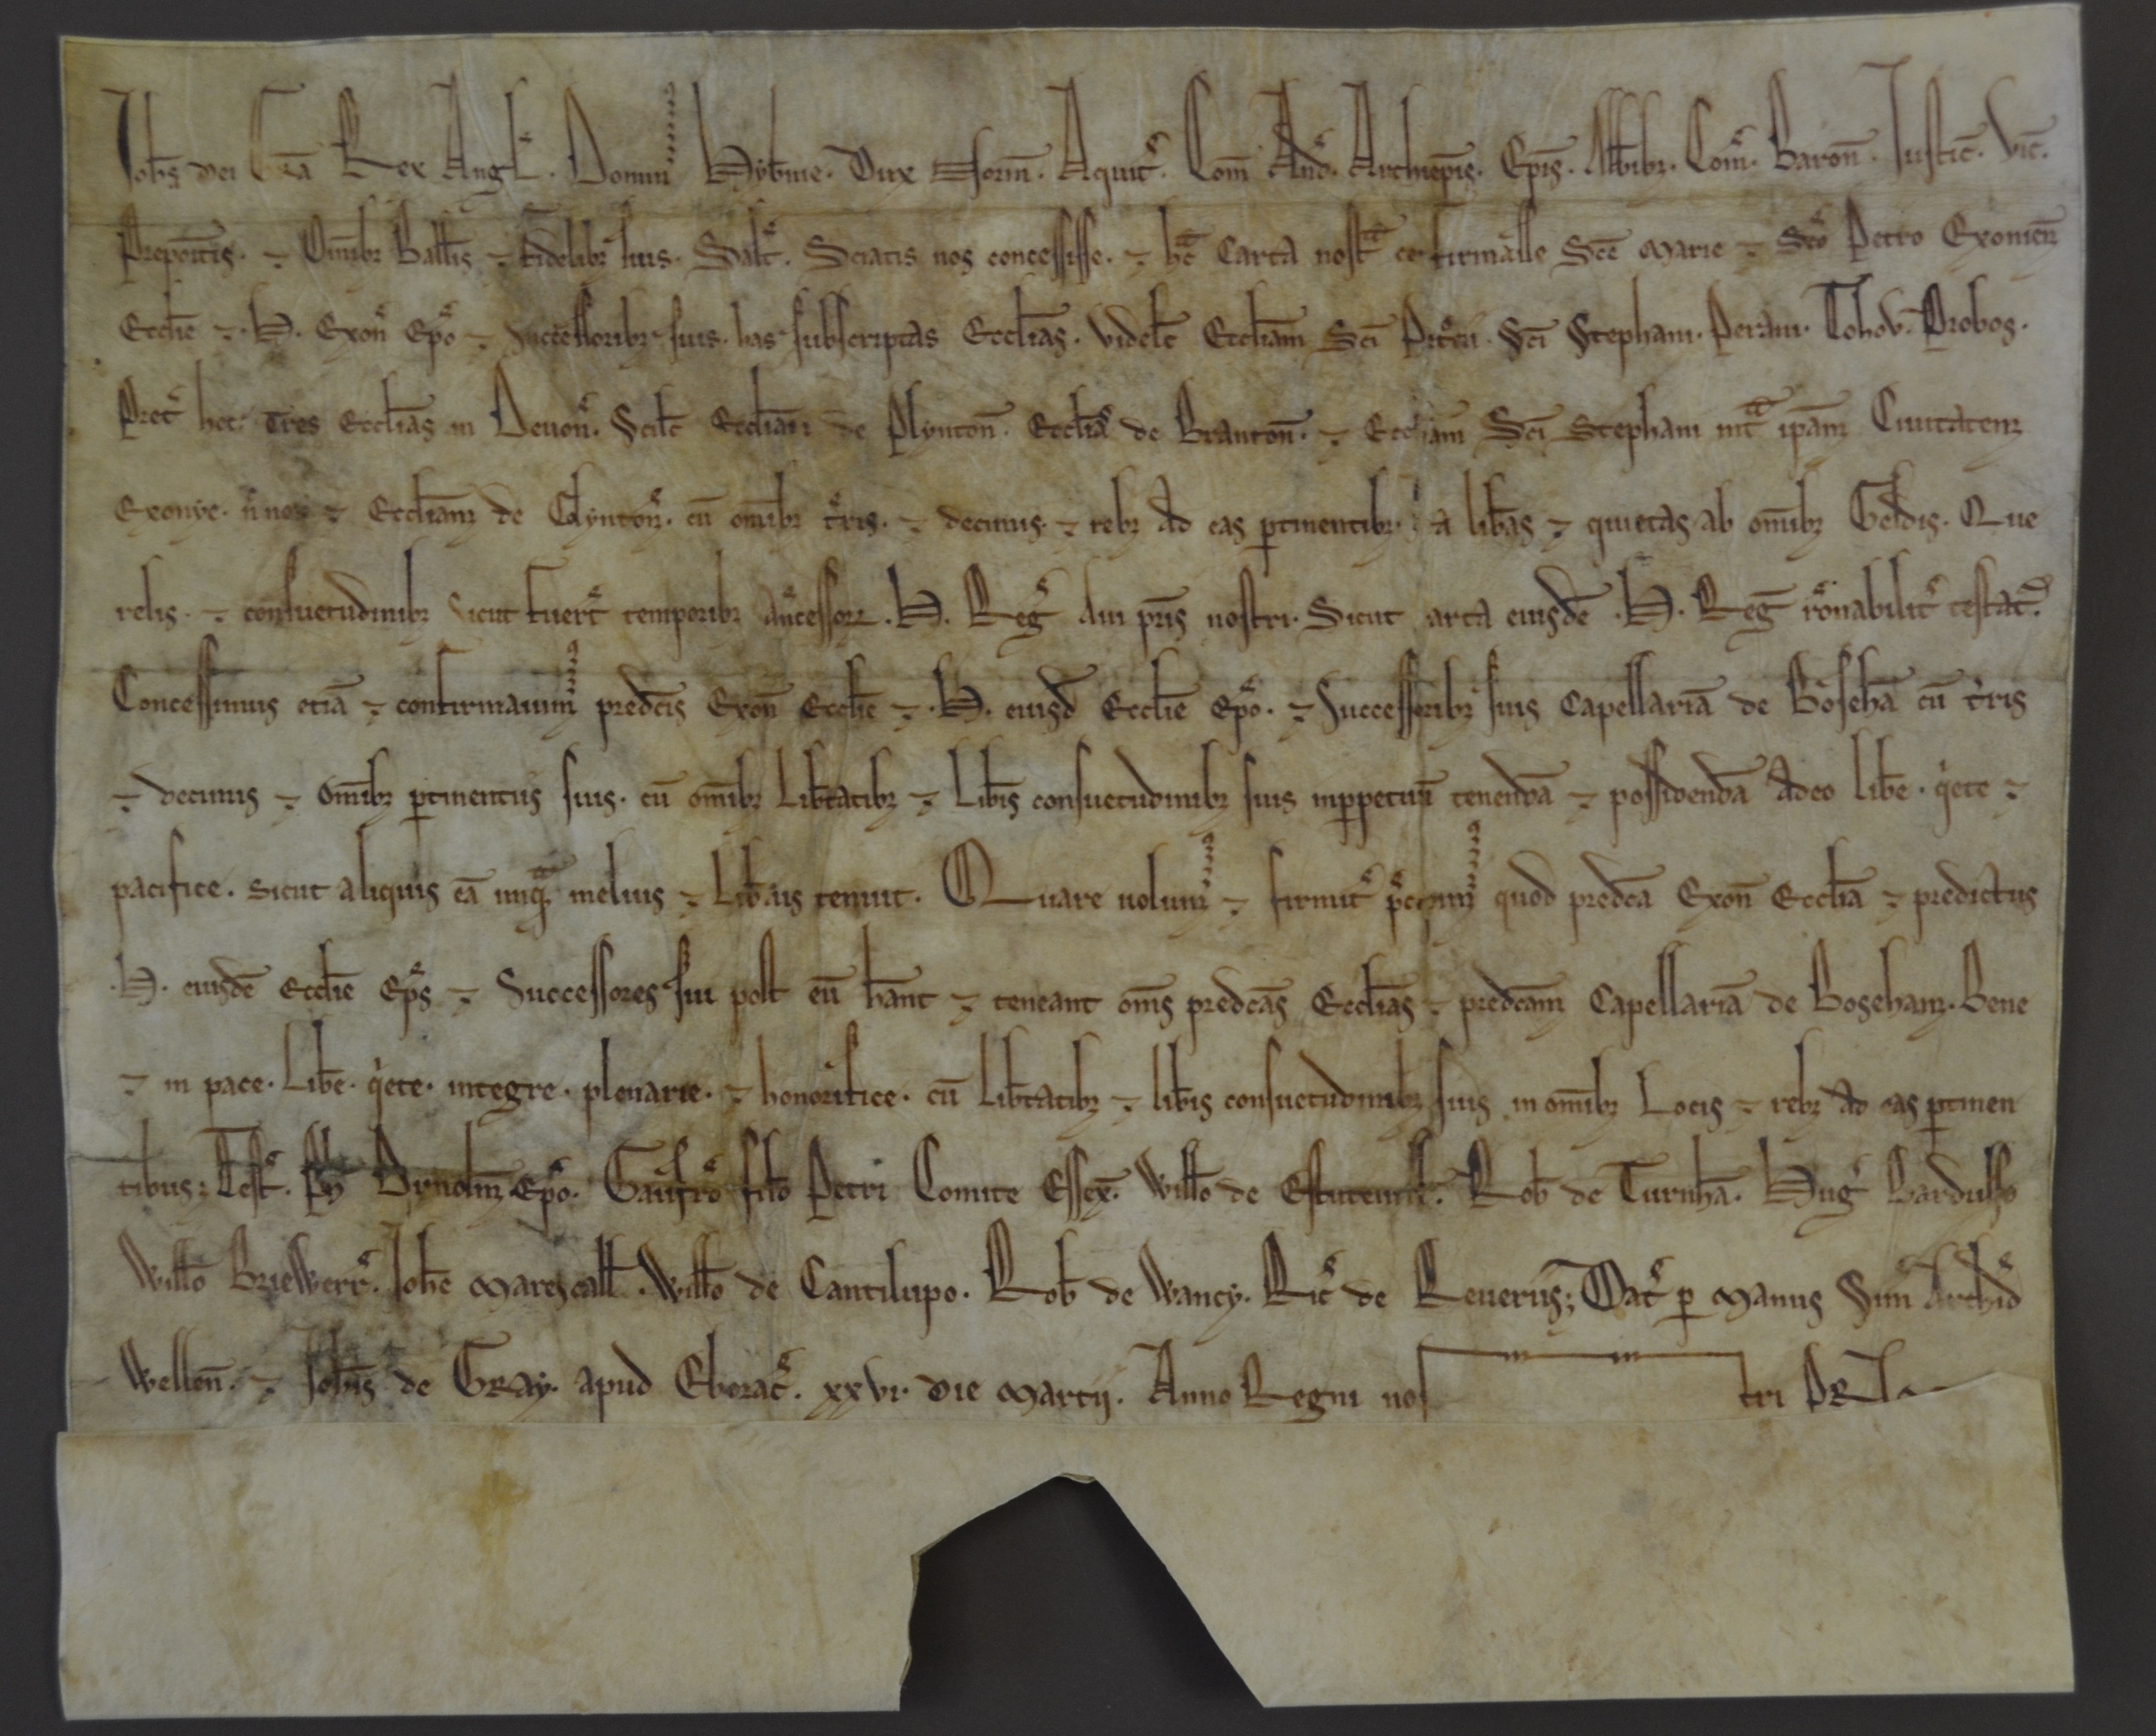 Johs dei Gra Rex Angl. Dominus Hybnie. Dux Norm. Aquit. Com And. Archiepis. Epis. Abbibz. Com. Baron. Justic. Vic.
Prepoitis. ⁊ Omibz Ballis ⁊ Fidelibz suis. Salt. Sciatis nos concessisse. ⁊ hac Carta nostra cofirmasse Sce Marie ⁊ Sco Petro Exonien
Ecclie ⁊ .H. Exon Epo ⁊ Successoribz suis. has subscriptas Ecclias. videlt Eccliam Sci Stephani. Peram. Tohov. Probos.
Pret hec. Tres Ecclias in Devon. Scilt Eccliam de Plynton. Eccliā de Branton. ⁊ Eccliam Sci Stephani int ipam Ciuitatem
Exonie. ⁊ Eccliam de Colynton. cū omibz tris. ⁊ decimis. ⁊ rebz ad eas ptinentibz. libas ⁊ quietas ab omibz Geldis. Que
relis. ⁊ consuetudinibz sicut fuert temporibz ancessorz .H. Reg Aui pris nostri. Sicut arta eiusde .H. Reg ronabilit testat.
Concessimus etiā ⁊ confirmauimus predcis Exon Ecclie ⁊ .H. eiusd Ecclie Epo. ⁊ Successoribz suis Capellariā de Bosehā cū tris
⁊ decimis ⁊ omibz ptinentiis suis. cū omibz Libtatibz ⁊ Libis consuetudinibz suis inppetuū tenendā ⁊ possidendā Adeo libe. qete ⁊
pacifice. sicut aliquis eā unqa melius ⁊ Libius tenuit. Quare uolumus ⁊ firmit pcipimus quod predca Exon Ecclia ⁊ predictus
.H. eiusde Ecclie Eps ⁊ Successores sui post eū hant ⁊ teneant oms predcas Ecclias ⁊ predcam Capellariā de Boseham. Bene
⁊ in pace. Libe. qete. integre. plenarie. ⁊ honorifice. cū libtatibz ⁊ libis consuetudinibz suis in omibz Locis ⁊ rebz ad eas ptinen
tibus; Test. Ph Dunolm Epo. Gaufro filio Petri Comite Essex. Willo de Estuteuill. Rob de Turnhā. Hug Bardulfo
Willo Briewerr. Johe Marescall. Willo de Cantilupo. Rob de Wancy. Ric de Reueriis; Dat p manus Sim Archid
Wellen. ⁊ Johis de Gray. apud Eborac. xxvi. die Martij. Anno Regni nostri